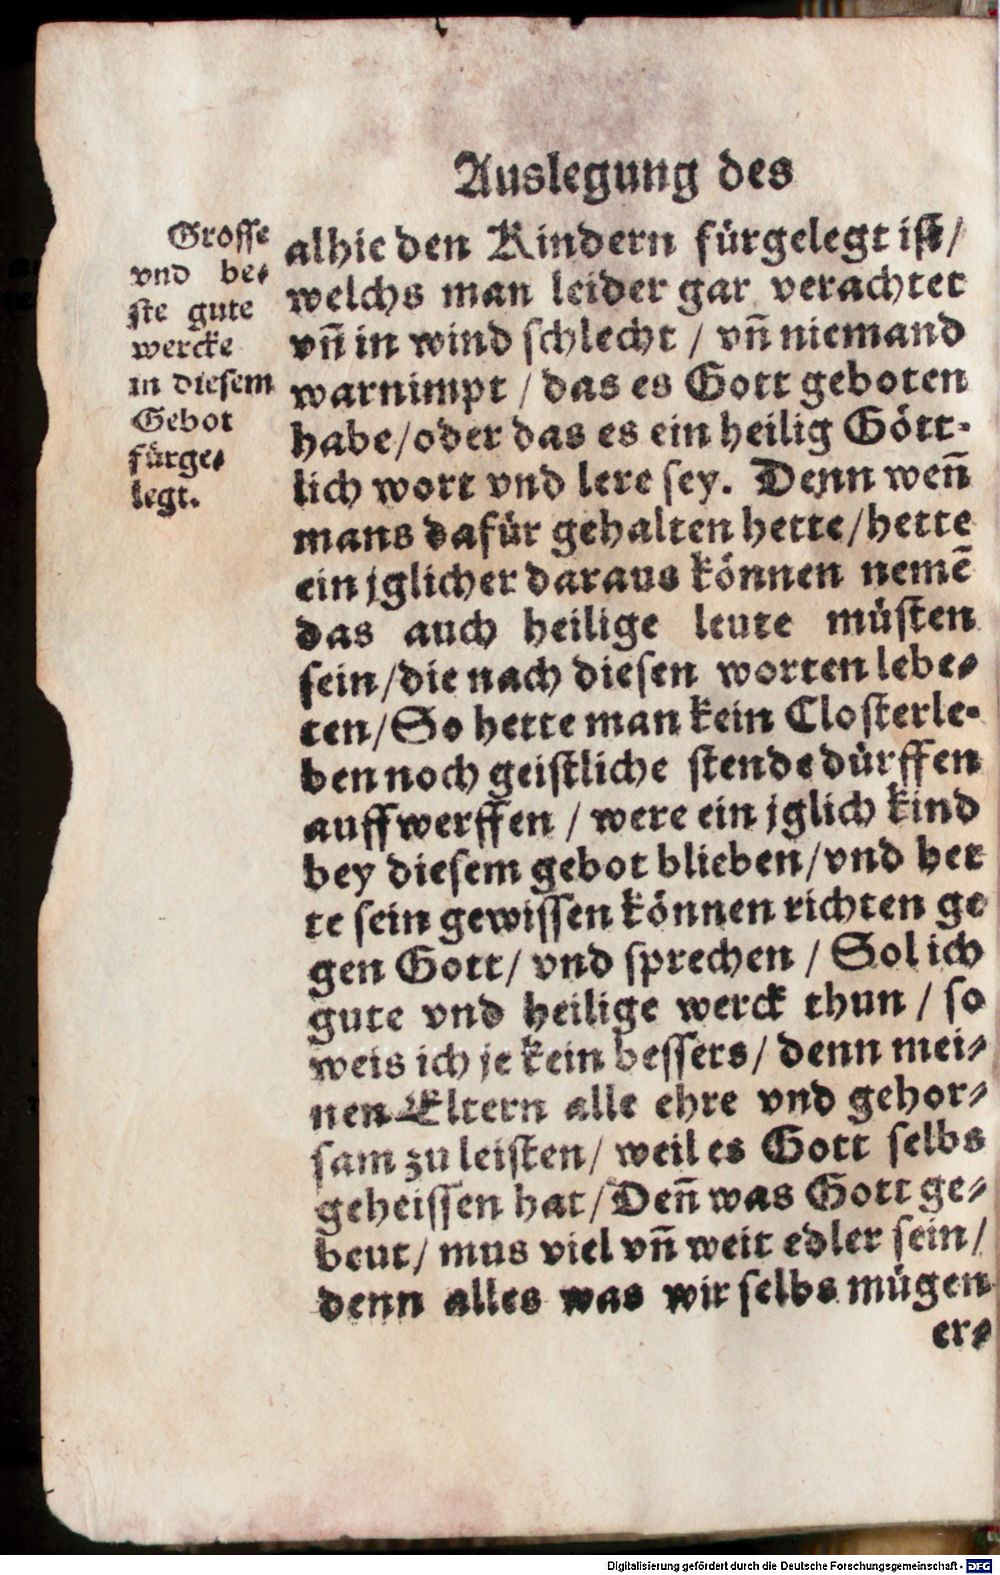 Auslegung des
Grosse
vnd be-
ste gute
wercke
in diesem
Gebot
fürge-
legt.
alhie den Kindern fürgelegt ist/
welchs man leider gar verachtet
vn̄ in wind schlecht / vn̄ niemand
warnimpt / das es Gott geboten
habe/oder das es ein heilig Gött-
lich wort vnd lere sey. Denn wen̄
mans dafür gehalten hette/hette
ein jglicher daraus können nemē
das auch heilige leute müsten
sein/die nach diesen worten lebe-
ten/So hette man kein Closterle-
ben noch geistliche stende dürffen
auffwerffen / were ein jglich kind
bey diesem gebot blieben/vnd het
te sein gewissen können richten ge
gen Gott/ vnd sprechen / Sol ich
gute vnd heilige werck thun / so
weis ich je kein bessers/ denn mei-
nen Eltern alle ehre vnd gehor-
sam zu leisten/ weil es Gott selbs
geheissen hat/Den̄ was Gott ge-
beut/ mus viel vn̄ weit edler sein/
denn alles was wir selbs mügen
er-
Digitalisierung gefördert durch die Deutsche Forschungsgemeinschaft - DFG